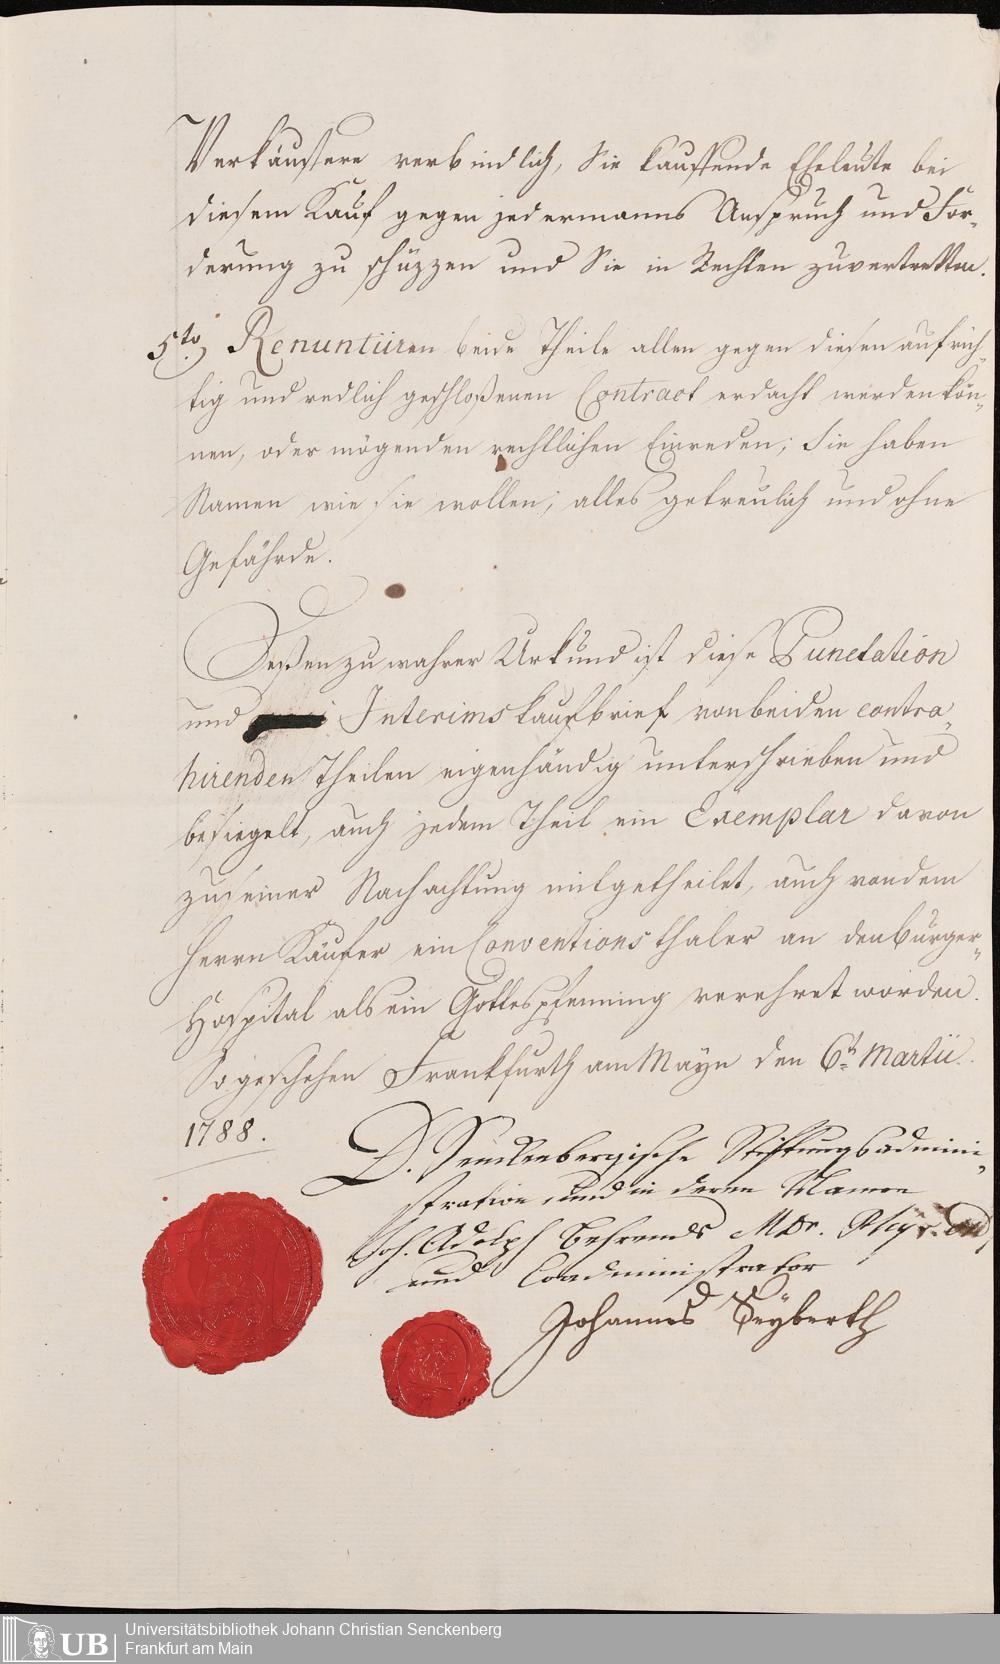 Verkäufere verbindlich, Sie kauffende Eheleute bei
diesem Kauf gegen jedermanns Anspruch und For-
derung zu schüzzen und Sie in Rechten zuvertretten.
5to) Renuntiiren beide Theile allen gegen diesen aufrich-
tig und redlich geschloßenen Contract erdacht werden kön-
nen, oder mögenden rechtlichen Einreden; Sie haben
Namen wie sie wollen; alles getreulich und ohne
Gefährde.
Deßen zu wahrer Urkund ist diese Punctation
und Interims kaufbrief von beiden contra-
hirenden Theilen eigenhändig unterschrieben und
besiegelt, auch jedem Theil ein Exemplar davon
zu seiner Nachachtung mitgetheilet, auch von dem
Herrn Käufer ein Conventions thaler an den Bürger-
Hospital als ein Gottespfenning verehret worden.
So geschehen Franckfurth am Mayn den 6t. Martii.
1788.
D. Senckenbergische Stiftungsadmini-
stration, und in deren Namen
Joh. Adolph Behrends M Dr.
und Coadministrator
Johannes Seyberth
Universitätsbibliothek Johann Christian Senckenberg
Frankfurt am Main
UB